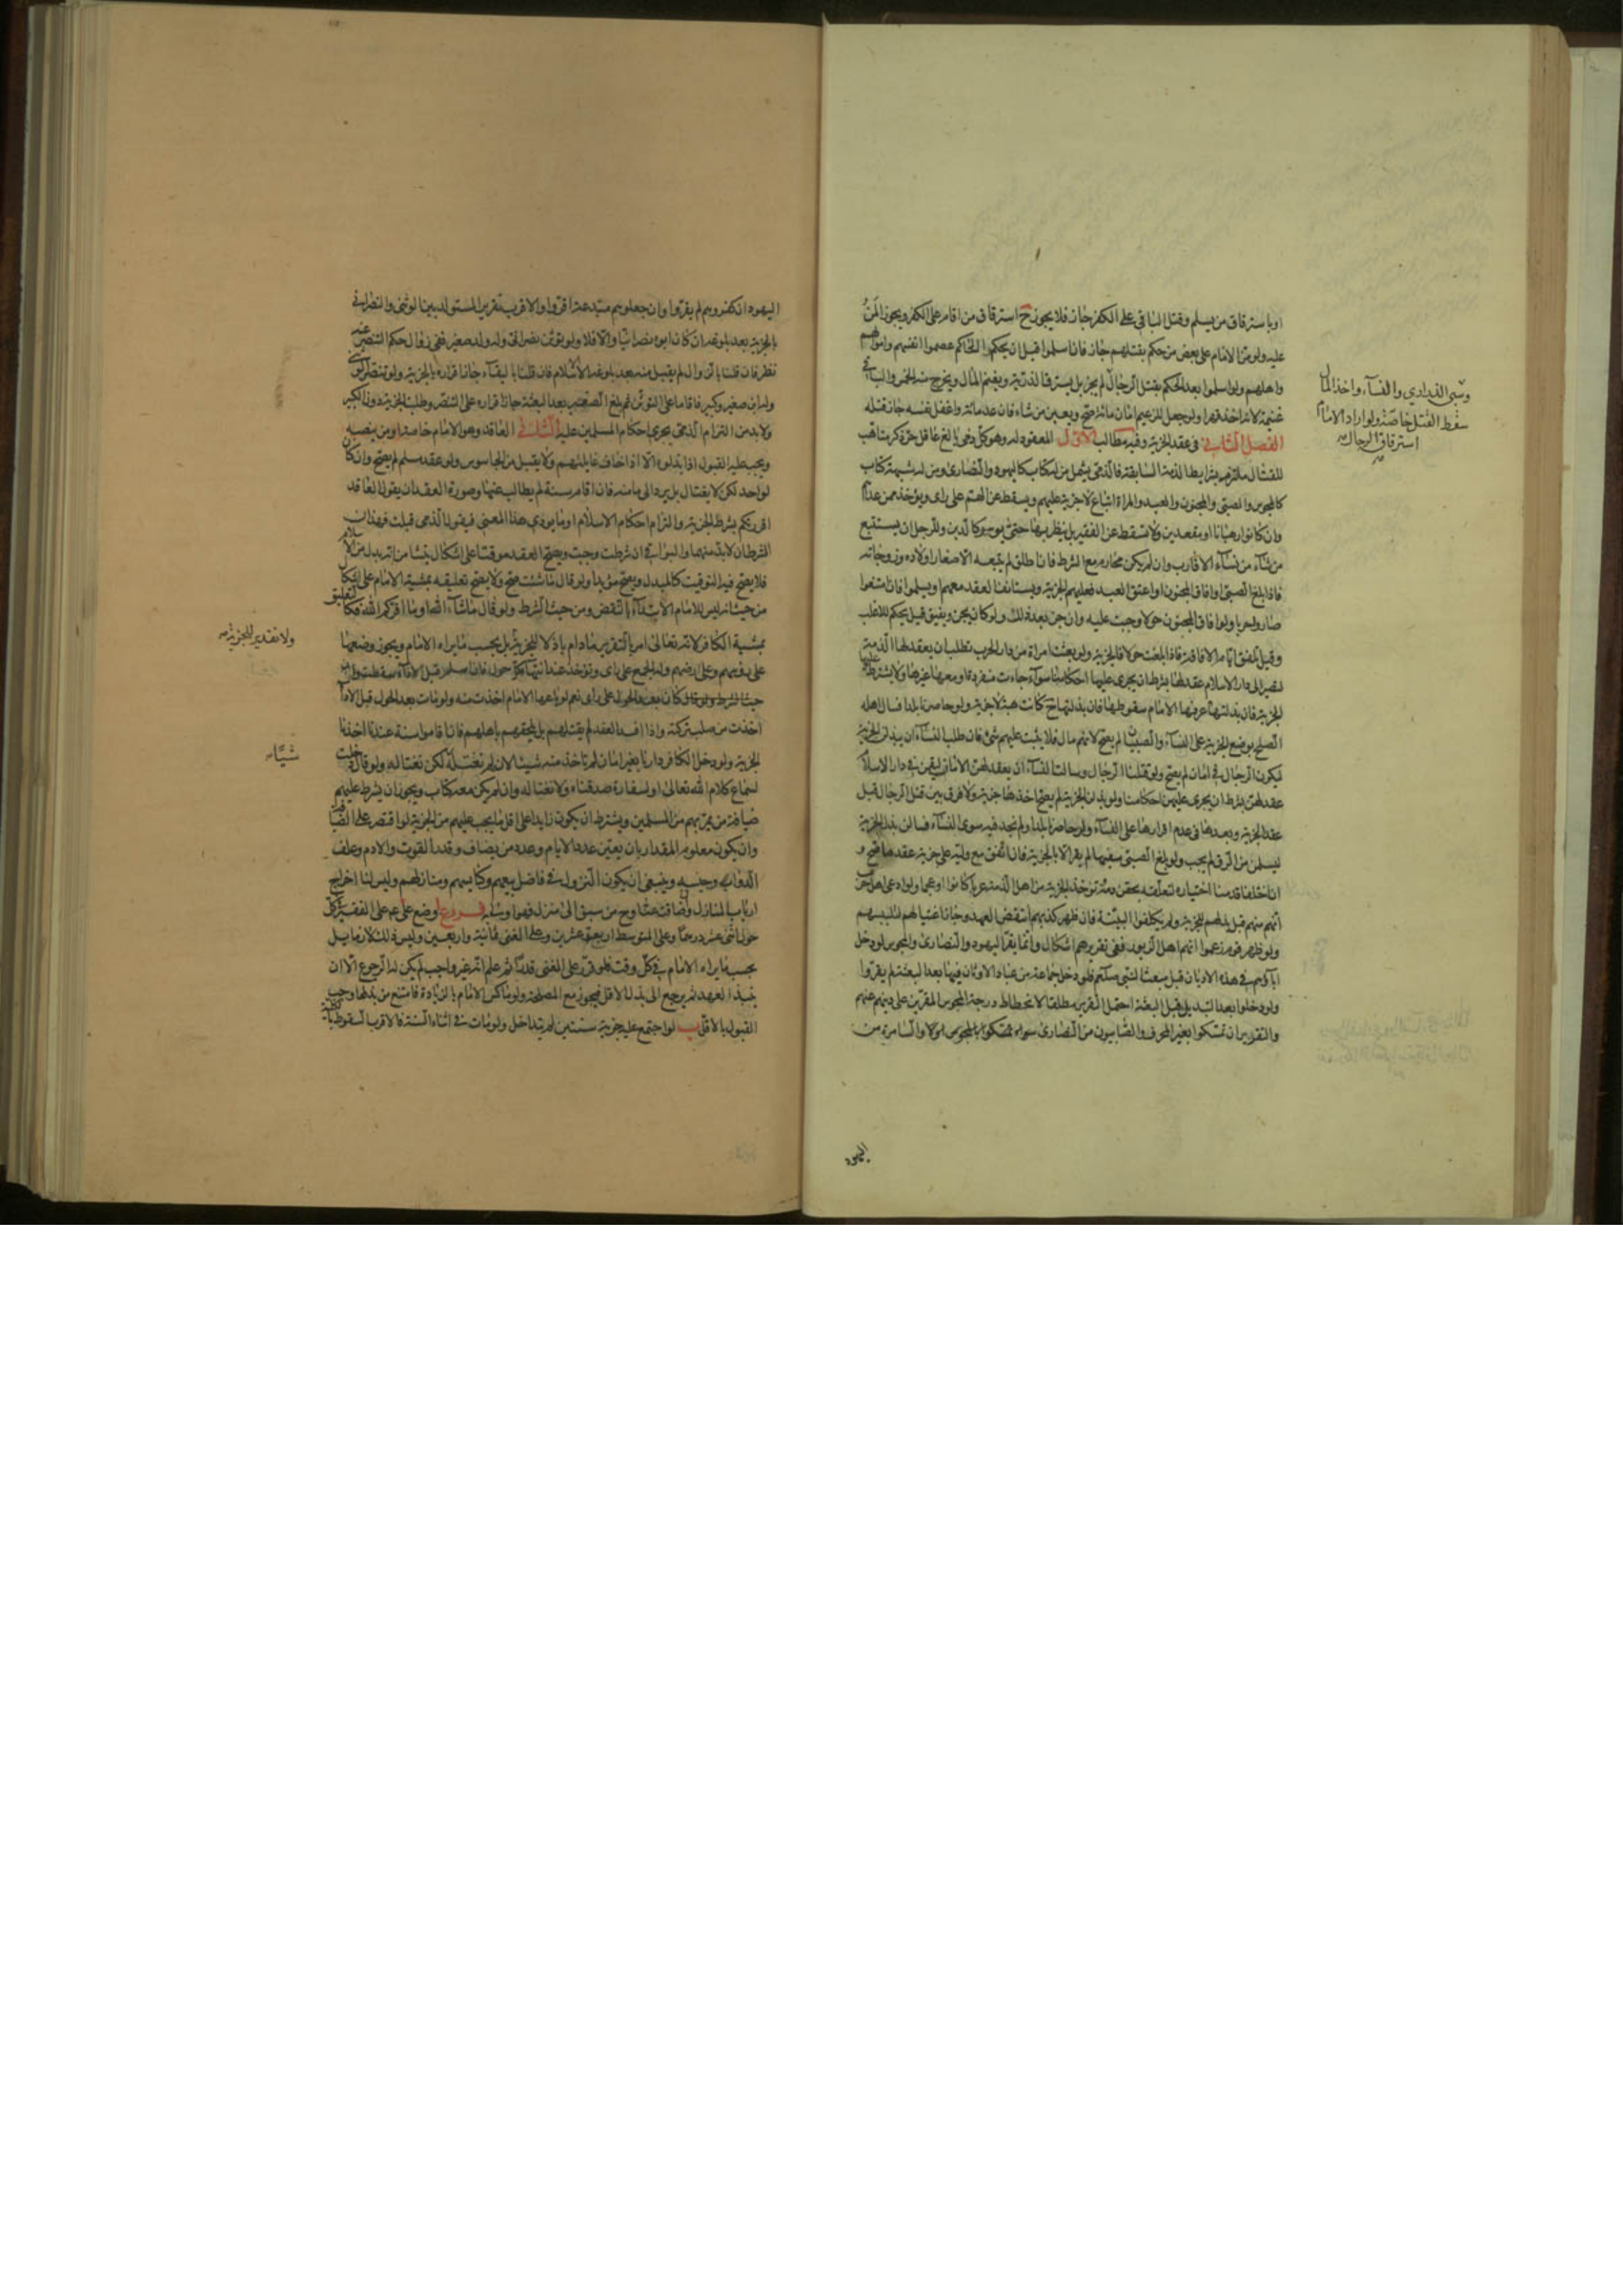 او باسترقاق من يسلم وقتل الباقي على الكفر جاز فلا يجوز ح استرقاق من اقام على الكفر ويجوز المن
عليه ولو من الامام على بعض من حكم بقتلهم جاز فان اسلموا قبل ان يحكم الحاكم عصموا انفسهم واموالهم
واهلهم ولو اسلموا بعد الحكم بقتل الرجال لم يجز بل يسترقا لذرية ويغنم المال ويخرج منه الخمس والباقي
غنيمة لانه اخذ قهرا ولو جعل للزعيم امان مائة صح ويعين من شاء فان عد مائة واغفل نفسه جاز قتله
الفصل الثاني في عقد الجزية وفيه مطالب الاول المعقود له وهو كل ذمي بالغ عاقل حر ذكر متاهب
للقتال ملتزم بشرايط الذمة السابقة فالذمي يشمل من له كتاب كاليهود والنصارى ومن له شبهة كتاب
كالمجوس والصبي والمجنون والعبد والمراة اتباع لا جزية عليهم ويسقط عن الهم على راى ويؤخذ ممن عداهم
وان كانوا رهبانا او مقعدين ولا تسقط عن الفقير بل ينظر بها حتى يوسر كالدين وللرجل ان يستتبع
من شاء من نساء الاقارب وان لم يكن محارم مع الشرط فان اطلق لم يتبعه الا صغار اولاده وزوجاته
فاذا بلغ الصبي او افاق المجنون او اعتق العبد فعليهم الجزية ويستانف العقد معهم او يسلموا فان امتنعوا
صاروا حربا ولو افاق المجنون حولا وجبت عليه وان جن بعد ذلك ولو كان يجن ويفيق قيل يحكم للاغلب
وقيل تلفق ايام الافاقة فاذا بلغت حولا فالجزية ولو بعثت امراة من دار الحرب تطلب ان يعقد لها الذمة
لتصير الى دار الاسلام عقد لها بشرط ان يجرى عليها احكامنا سواء جاءت منفردة او معها غيرها ولا يشترط عليها
الجزية فان بذلتها عرفها الامام سقوطها فان بذلتها ح كانت هبة لا جزية ولو حاصرنا بلدا فسال اهله
الصلح بوضع الجزية على النساء والصبيان لم يصح لانهم مال فلا يثبت عليهم شئ فان طلب النساء ان يبذلن الجزية
ليكون الرجال في امان لم يصح ولو قتلنا الرجال وسالت النساء ان يعقد لهن الامان ليقمن في دار الاسلام
عقد لهن بشرط ان يجرى عليهن احكامنا ولو بذلن الجزية لم يصح اخذها جزية ولا فرق بين قتل الرجال قبل
عقد الجزية وبعدها في عدم اقرارها على النساء ولو حاصرنا بلدا ولم نجد فيه سوى النساء فسالن بذل الجزية
ليسلمن من الرق لم يجب ولو بلغ الصبي سفيها لم يقر الا بالجزية فان اتفق مع وليه على جزية عقدها صح و
ان اختلفا قدمنا اختياره لتعلقه بحقن دمه وتؤخذ الجزية من اهل الذمة عربا كانوا او عجما ولو ادعى اهل حرب
انهم منهم قبل بذلهم للجزية ولم يكلفوا البينة فان ظهر كذبهم انتقض العهد وجاز اغتيالهم لتلبيسهم
ولو ظهر قوم زعموا انهم اهل الزبور ففى تقريرهم اشكال وانما يقر اليهود والنصارى والمجوس لو دخل
اباؤهم في هذه الاديان قبل مبعث النبى صلعم فلو دخل جماعة من عباد الاوثان فيها بعد البعثة لم يقروا
ولو دخلوا بعد التبديل قبل البعثة احتمل التقرير مطلقا لانحطاط درجة المجوس المقرين على دينهم عنهم
والتقرير ان تمسكوا بغير المحرف والصابيون من النصارى والسامرة من
اليهود
وسبى الذرارى والنساء واخذ المال
سقط القتل خاصة ولو اراد الامام
استرقاق الرجال
اليهود ان كفروهم لم يقروا وان جعلوهم مبتدعة اقروا والاقرب تقرير المتولد بين الوثنى والنصرانى
بالجزية بعد بلوغه ان كان ابوه نصرانيا والا فلا ولو توثن نصرانى وله ولد صغير ففى زوال حكم التنصر عنه
نظر فان قلنا بالزوال لم يقبل منه بعد بلوغه الا الاسلام فان قلنا بالبقاء جاز اقراره بالجزية ولو تنصر الوثنى
وله ابن صغير وكبير فاقاما على التوثن ثم بلغ الصغير بعد البعثة جاز اقراره على التنصر وطلب الجزية دون الكبير
ولابد من التزام الذمى بجرى احكام المسلمين عليه الثانى العاقد وهو الامام خاصة او من ينصبه
ويجب عليه القبول اذا بذلوه الا اذا خاف غايلتهم ولا يقبل من الجاسوس ولو عقده مسلم لم يصح وان كان
لواحد لكن لا يغتال بل يرد الى مامنه فان اقام سنة لم يطالب عنها وصورة العقد ان يقول العاقد
اقررتكم بشرط الجزية والتزام احكام الاسلام او ما يودي هذا المعنى فيقول الذمى قبلت فهذان
الشرطان لابد منهما والبواقى ان شرطت وجبت ويصح العقد موقتا على اشكال ينشأ من انه بدل من الاسلام
فلا يصح فيه التوقيت كالمبدل ويصح مؤبدا ولو قال ما شئت صح ولا يصح تعليقه بمشية الامام على اشكال
من حيث انه ليس للامام الابتداء بالنقض ومن حيث الشرط ولو قال ما شاء الله او ما اقركم الله فكالتعليق
بمشية الكافر لانه تعالى امر بالتقرير مادام باذلا للجزية بل بحسب ما يراه الامام ويجوز وضعها
على رؤسهم وعلى ارضهم وله الجمع على راى وتؤخذ عند انتهاء كل حول فان اسلم قبل الاداء سقطت وان
كان بعد الحول على راى نعم لو باعها الامام اخذت منه ولو مات بعد الحول قبل الاداء
اخذت من صلب تركته واذا افسد العقد لم يقتلهم بل يلحقهم باهلهم فان اقاموا سنة عندنا اخذنا
الجزية ولو دخل الكافر دارنا بغير امان لم تاخذ منه شيئا لانه لم نغتسله لكن نغتاله ولو قال دخلت
لسماع كلام الله تعالى او لسفارة صدقناه ولا نغتاله وان لم يكن معه كتاب ويجوز ان يشرط عليهم
ضيافة من يمر بهم من المسلمين ويشترط ان يكون زايدا على اقل ما يجب عليهم من الجزية لو اقتصر على الضيافة
وان يكون معلوم المقدار بان يعين عدد الايام وعدد من يضاف وقدر القوت والادم وعلف
الدواب وجنسه وينبغى ان يكون النزول في فاضل بيعهم وكنايسهم ومنازلهم وليس لنا اخراج
ارباب المنازل وان ضاقت عنا وح من سبق الى منزل فهو اولى به فروع ا وضع على ع م على الفقير في كل
حول اثنى عشر درهما وعلى المتوسط اربعة وعشرين وعلى الغنى ثمانية واربعين وليس ذلك لازما بل
بحسب ما يراه الامام في كل وقت فلو قرر على الغنى قدرا ثم علم انه غير واجب لم يكن له الرجوع الا ان
ينبذ العهد ثم يرجع الى بذل الاقل فيجوز مع المصلحة ولو ماكس الامام بالزيادة فامتنع من بذلها وجب
القبول بالاقل ب لو اجتمع عليه جزية سنتين لم يتداخل ولو مات في اثناء السنة فالاقرب السقوط
ولا تقدير للجزية
شيئا